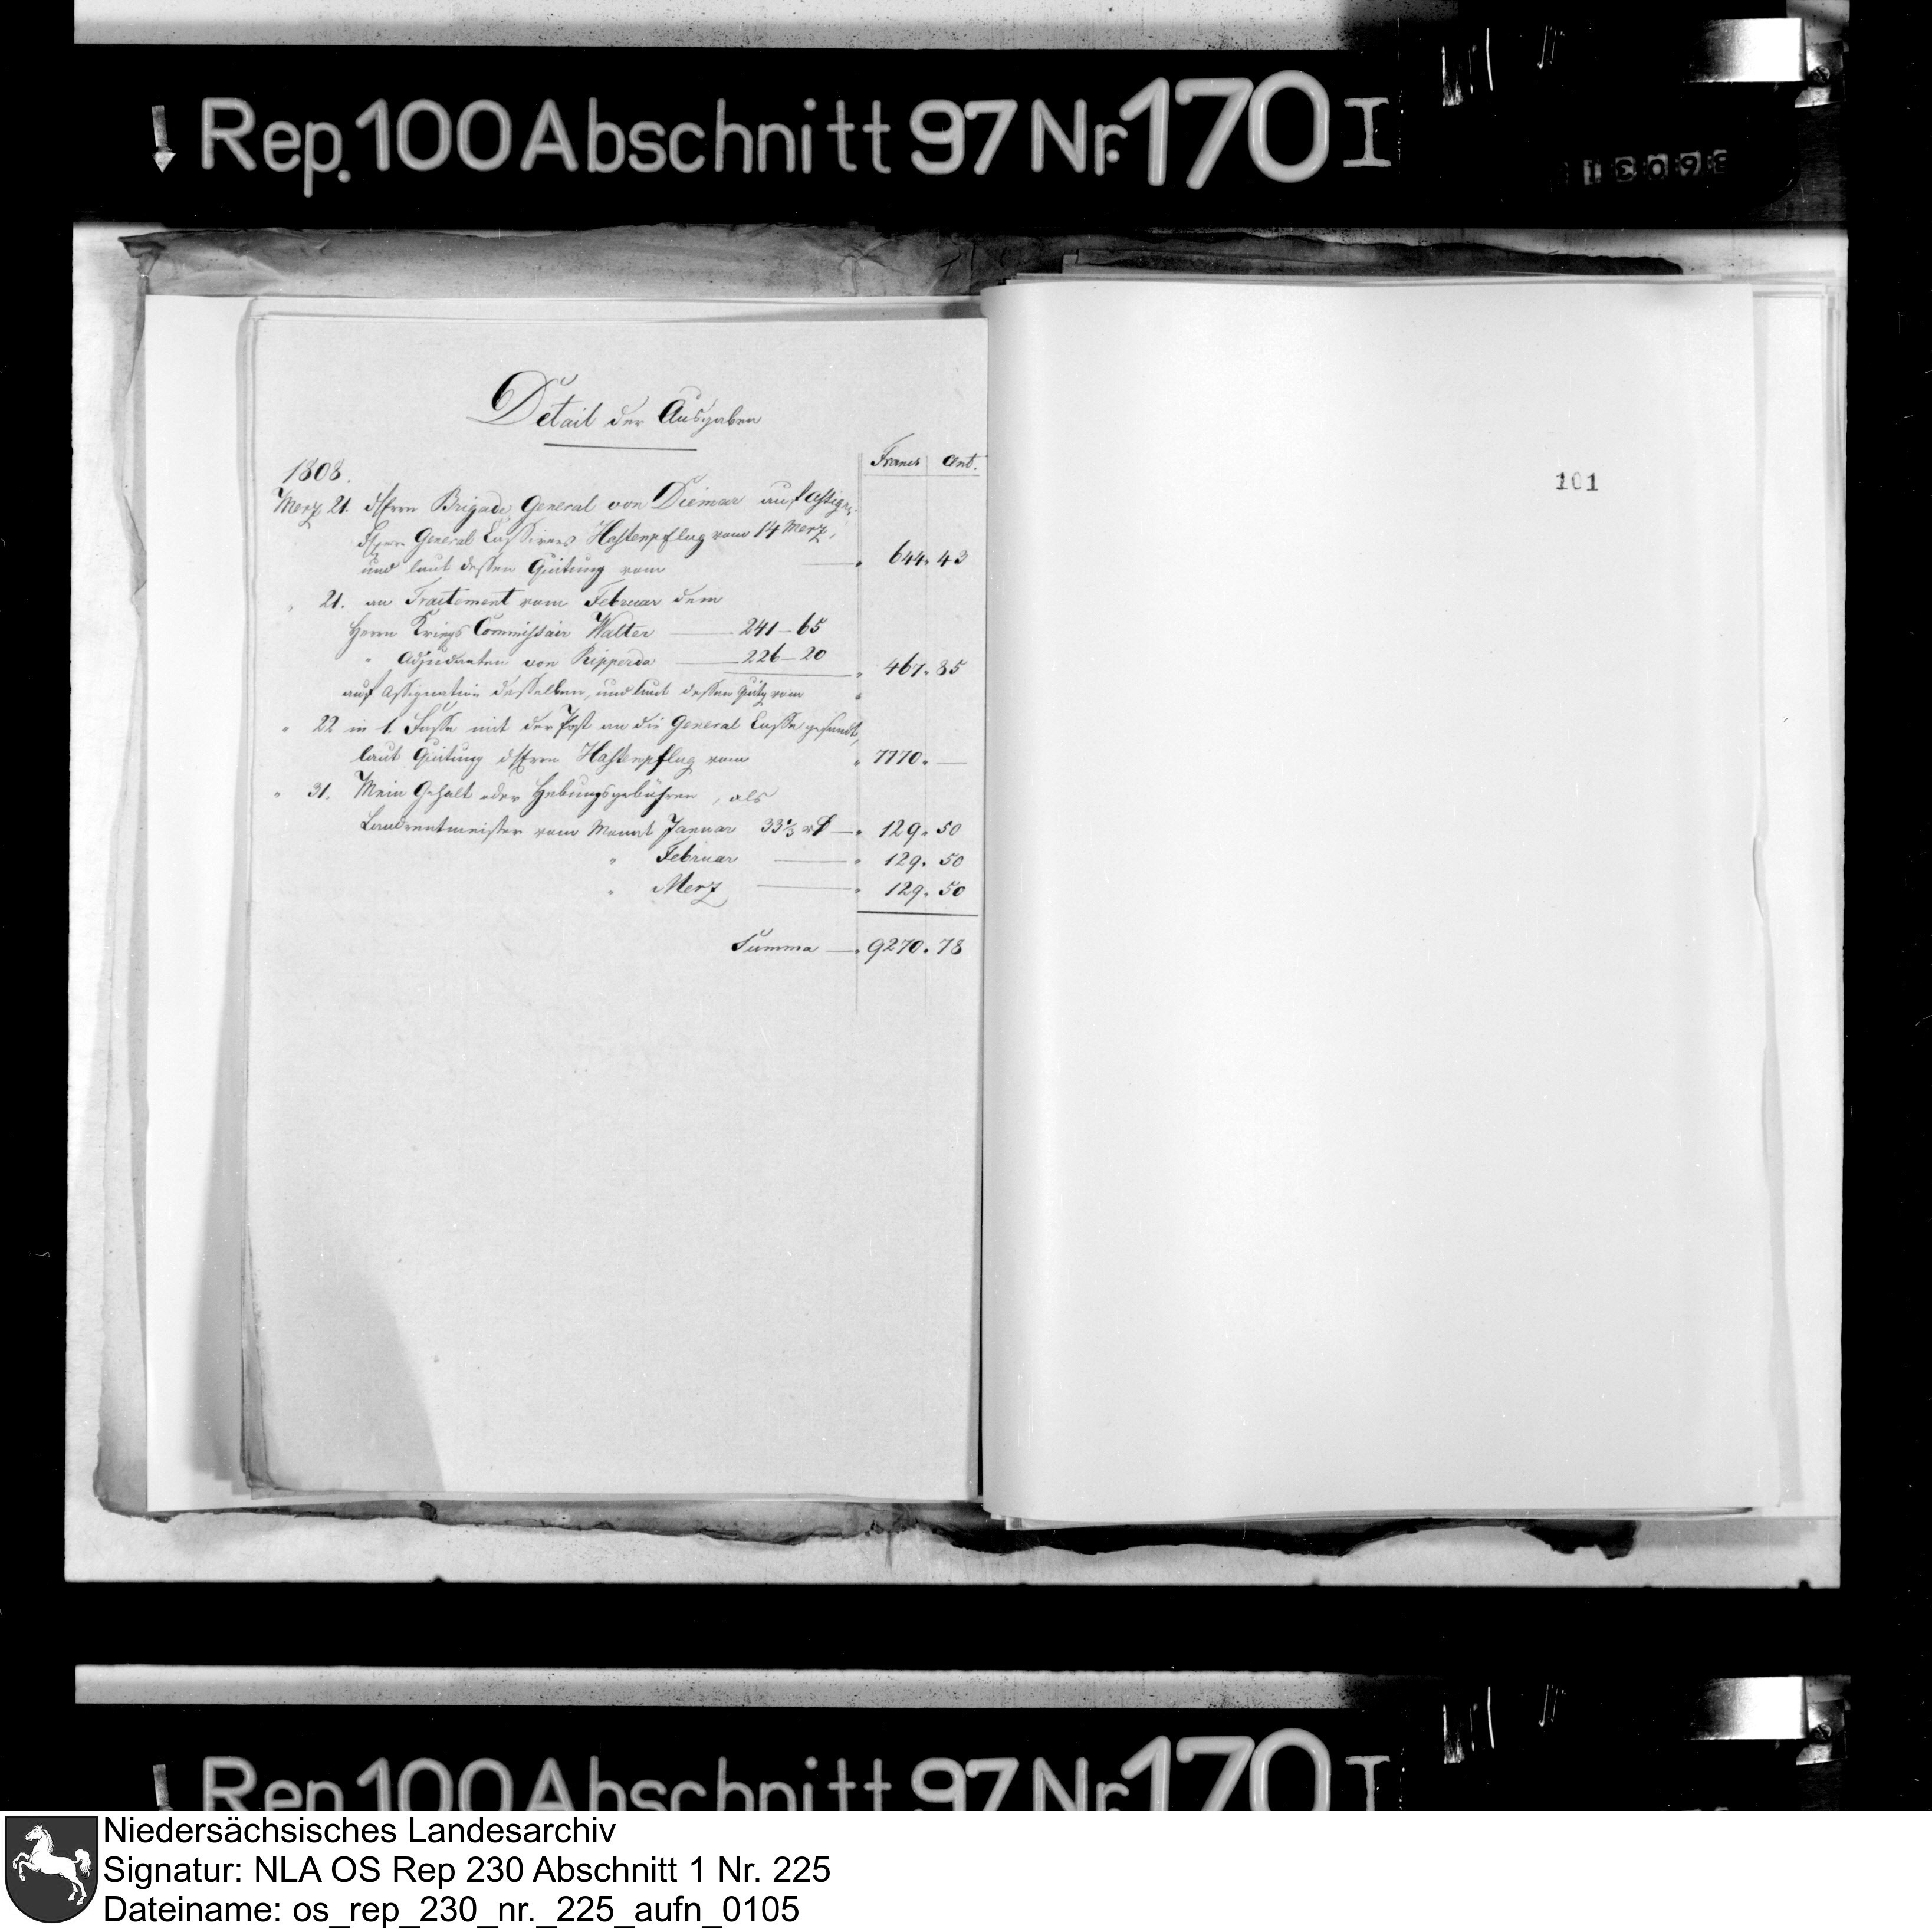 Rep. 100 Abschnitt 97 Nr. 170 I
Detail der Ausgaben
Francs Cent.
1808.
Merz 21. dHerrn Brigade General von Diemar auf Assign:
dHerrn General Cassirers Hastenpflug vom 14 Merz,
und laut dessen Quitung vom — " 644. 43
" 21. an Traitement vom Februar dem
Herrn Kriegs Commissair Walter — 241 — 65
" Adjudanten von Ripperda — 226 — 20 " 467. 85
auf Assignation desselben, und laut dessen Quitg vom "
" 22 in 1. Fasse mit der Post an die General Casse gesandt,
laut Quitung dHerrn Hastenpflug vom " 7770. —
" 31. Mein Gehalt oder Hebungsgebühren, als
Landrentmeister vom Monat Januar 33⅓ — " 129. 50
" Februar — " 129. 50
" Merz — " 129. 50
Summa — " 9270. 78
101
Rep. 100 Abschnitt 97 Nr. 170 I
Niedersächsisches Landesarchiv
Signatur: NLA OS Rep 230 Abschnitt 1 Nr. 225
Dateiname: os_rep_230_nr._225_aufn_0105